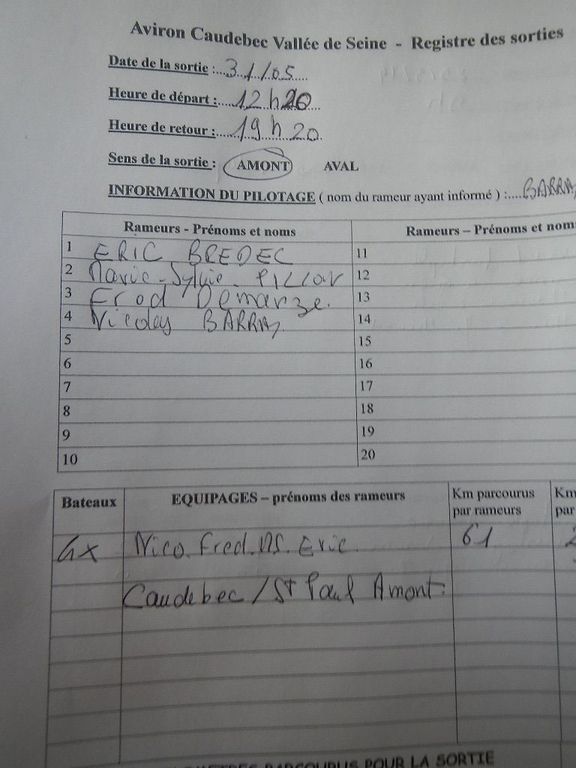 Aviron Caudebec Vallée de Seine - Registre des sorties
Date de la sortie :...31/05....
Heure de départ :....12h20....
Heure de retour :.....19h20.
Sens de la sortie : AMONT AVAL
INFORMATION DU PILOTAGE ( nom du rameur ayant informé ) :....BARRA
Rameurs - Prénoms et noms Rameurs – Prénoms et nom
1 ERIC BREDEC 11
2 Marie-Sylvie 12
3 Fred Demarze. 13
4 Nicolas BARRAy 14
5 15
6 16
7 17
8 18
9 19
10 20
Bateaux EQUIPAGES – prénoms des rameurs Km parcourus par rameurs Km par
4x Nico. Fred. MS. Eric. 61
Caudebec / St Paul Amont.
PARCOURUS POUR LA SORTIE